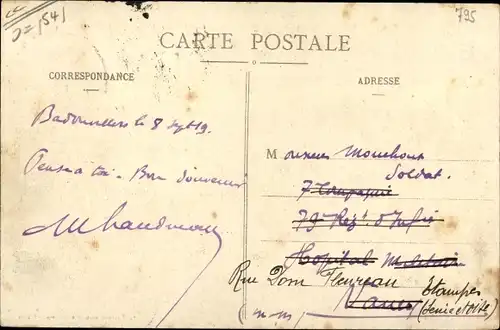 795
CARTE POSTALE
CORRESPONDANCE
ADRESSE
Badonvillers le 8 Sept 19.
Pense à toi - Bon souvenir
Monsieur Mouchoux
Soldat.
7e Compagnie
79 Regt d'Infie
Hopital Militaire
Rue Dom Fleureau Etampes
Nancy (Seine et Oise)